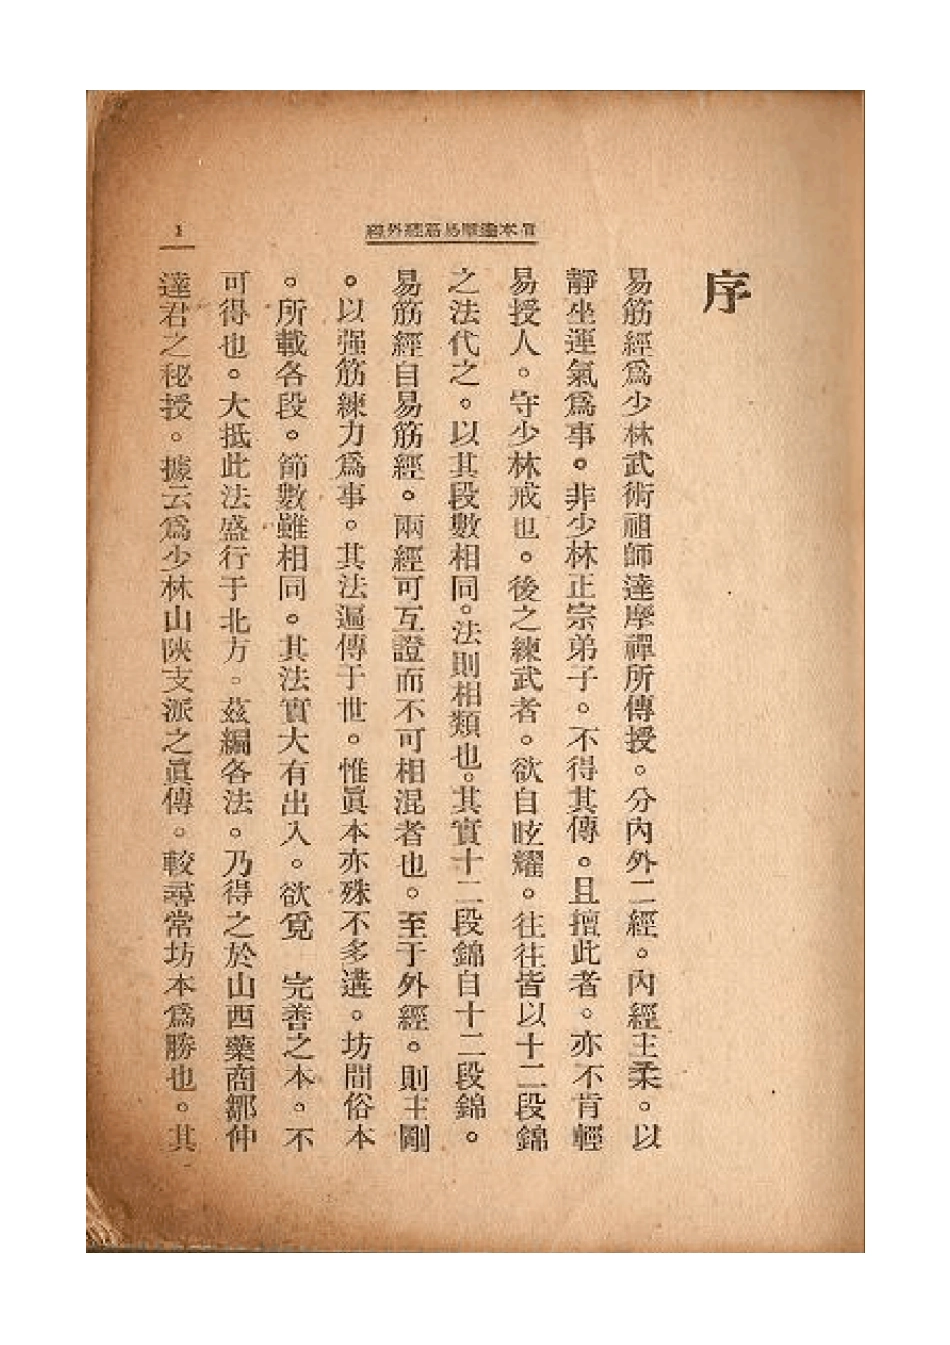 眞本達摩易筋經外經
1
序
易筋經爲少林武術祖師達摩禪所傳授。分內外二經。內經主柔。以
靜坐運氣爲事。非少林正宗弟子。不得其傳。且擅此者。亦不肯輕
易授人。守少林戒也。後之練武者。欲自眩耀。往往皆以十二段錦
之法代之。以其段數相同。法則相類也。其實十二段錦自十二段錦。
易筋經自易筋經。兩經可互證而不可相混者也。至于外經。則主剛
。以强筋練力爲事。其法遍傳于世。惟眞本亦殊不多遘。坊間俗本
。所載各段。節數雖相同。其法實大有出入。欲覓 完善之本。不
可得也。大抵此法盛行于北方。茲編各法。乃得之於山西藥商鄒仲
達君之秘授。據云爲少林山陝支派之眞傳。較尋常坊本爲勝也。其